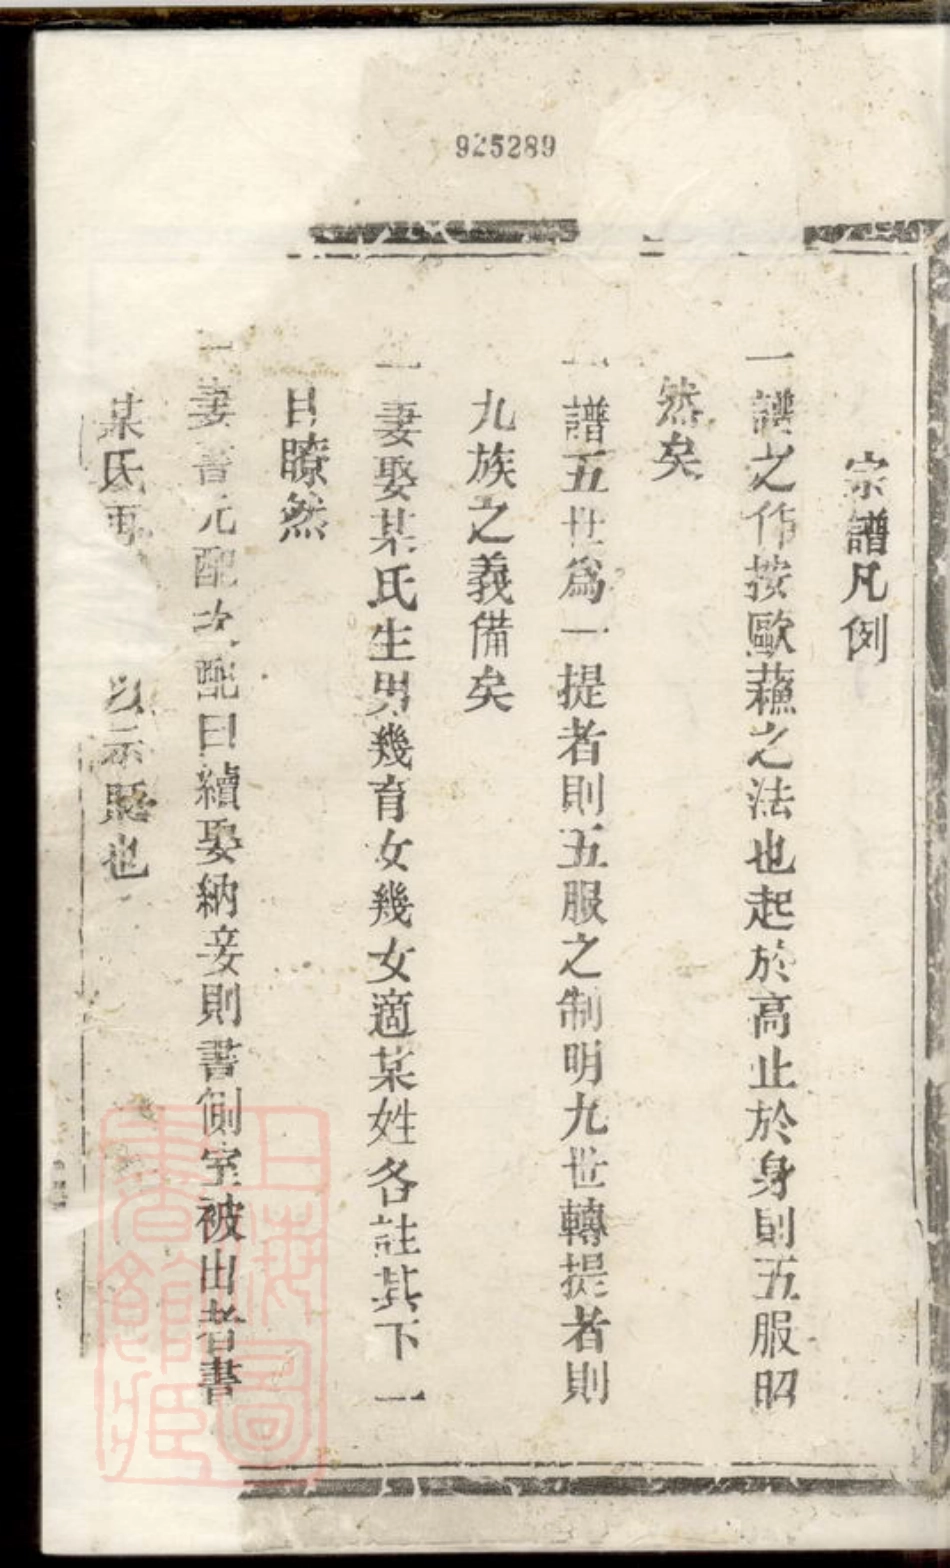 925289
宗譜凡例
一譜之作按歐蘓之法也起於高止於身則五服昭
然矣
一譜五世爲一提者則五服之制明九世轉提者則
九族之義備矣
一妻娶某氏生男幾育女幾女適某姓各註其下一
目瞭然
一妻書元配次配曰續娶納妾則書側室被出者書
某氏 以示貶也
上海圖書館藏